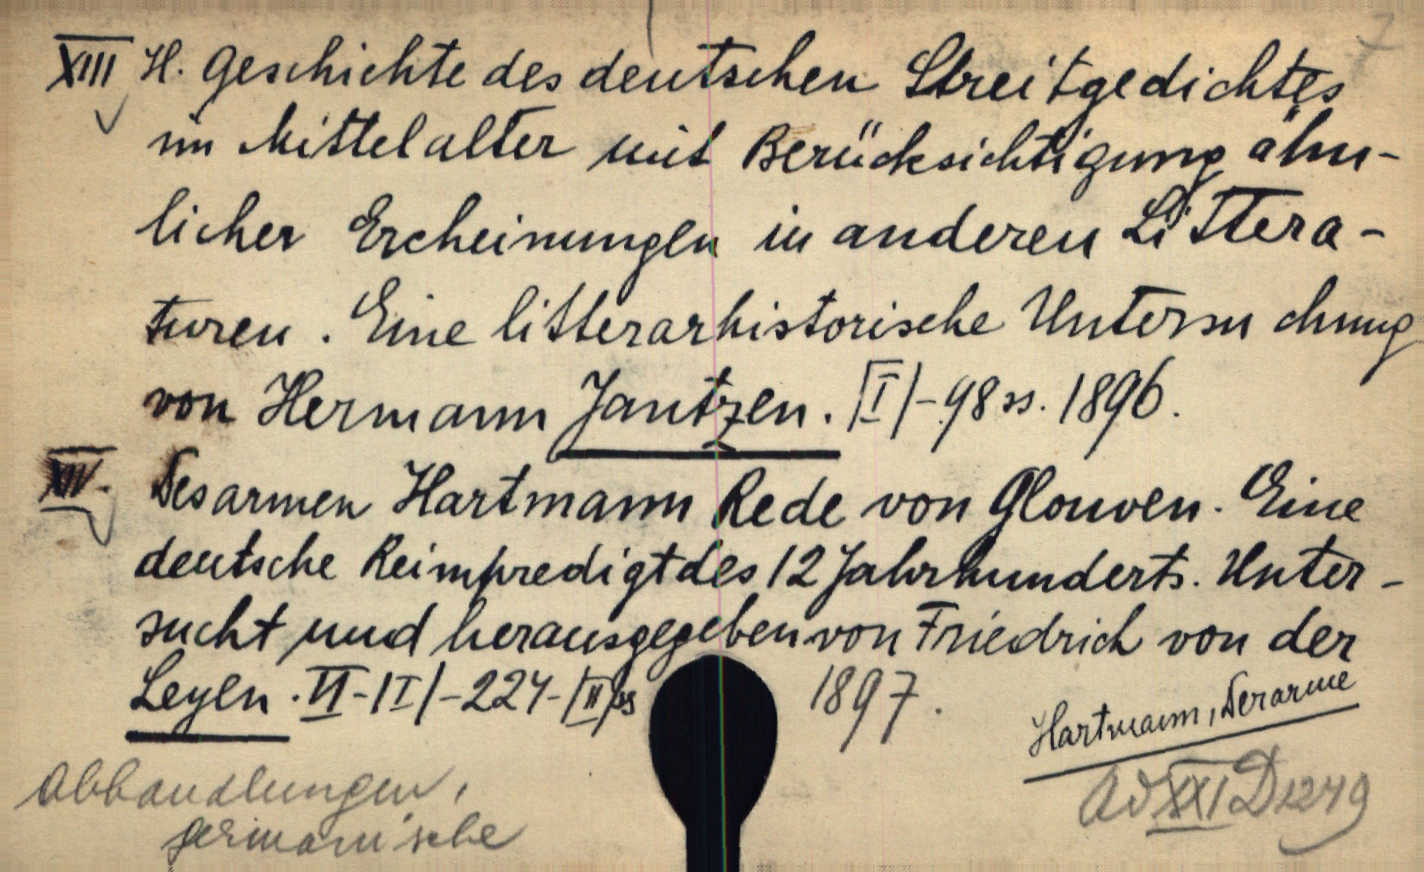 7
XIII H. Geschichte des deutschen Streitgedichtes
im Mittelalter mit Berücksichtigung ähn-
licher Ercheinungen in anderen Littera-
turen. Eine litterarhistorische Untersuchung
von Hermann Jantzen. /I/-98 ss. 1896.
XIV. Des armen Hartmann Rede von Glouven. Eine
deutsche Reimpredigt des 12 Jahrhunderts. Unter-
sucht und herausgegeben von Friedrich von der
Leyen. VI-/I/-224-/II/ss 1897.
Hartmann, Der arme
Abhandlungen,
germanische
Ad XXI D 1249